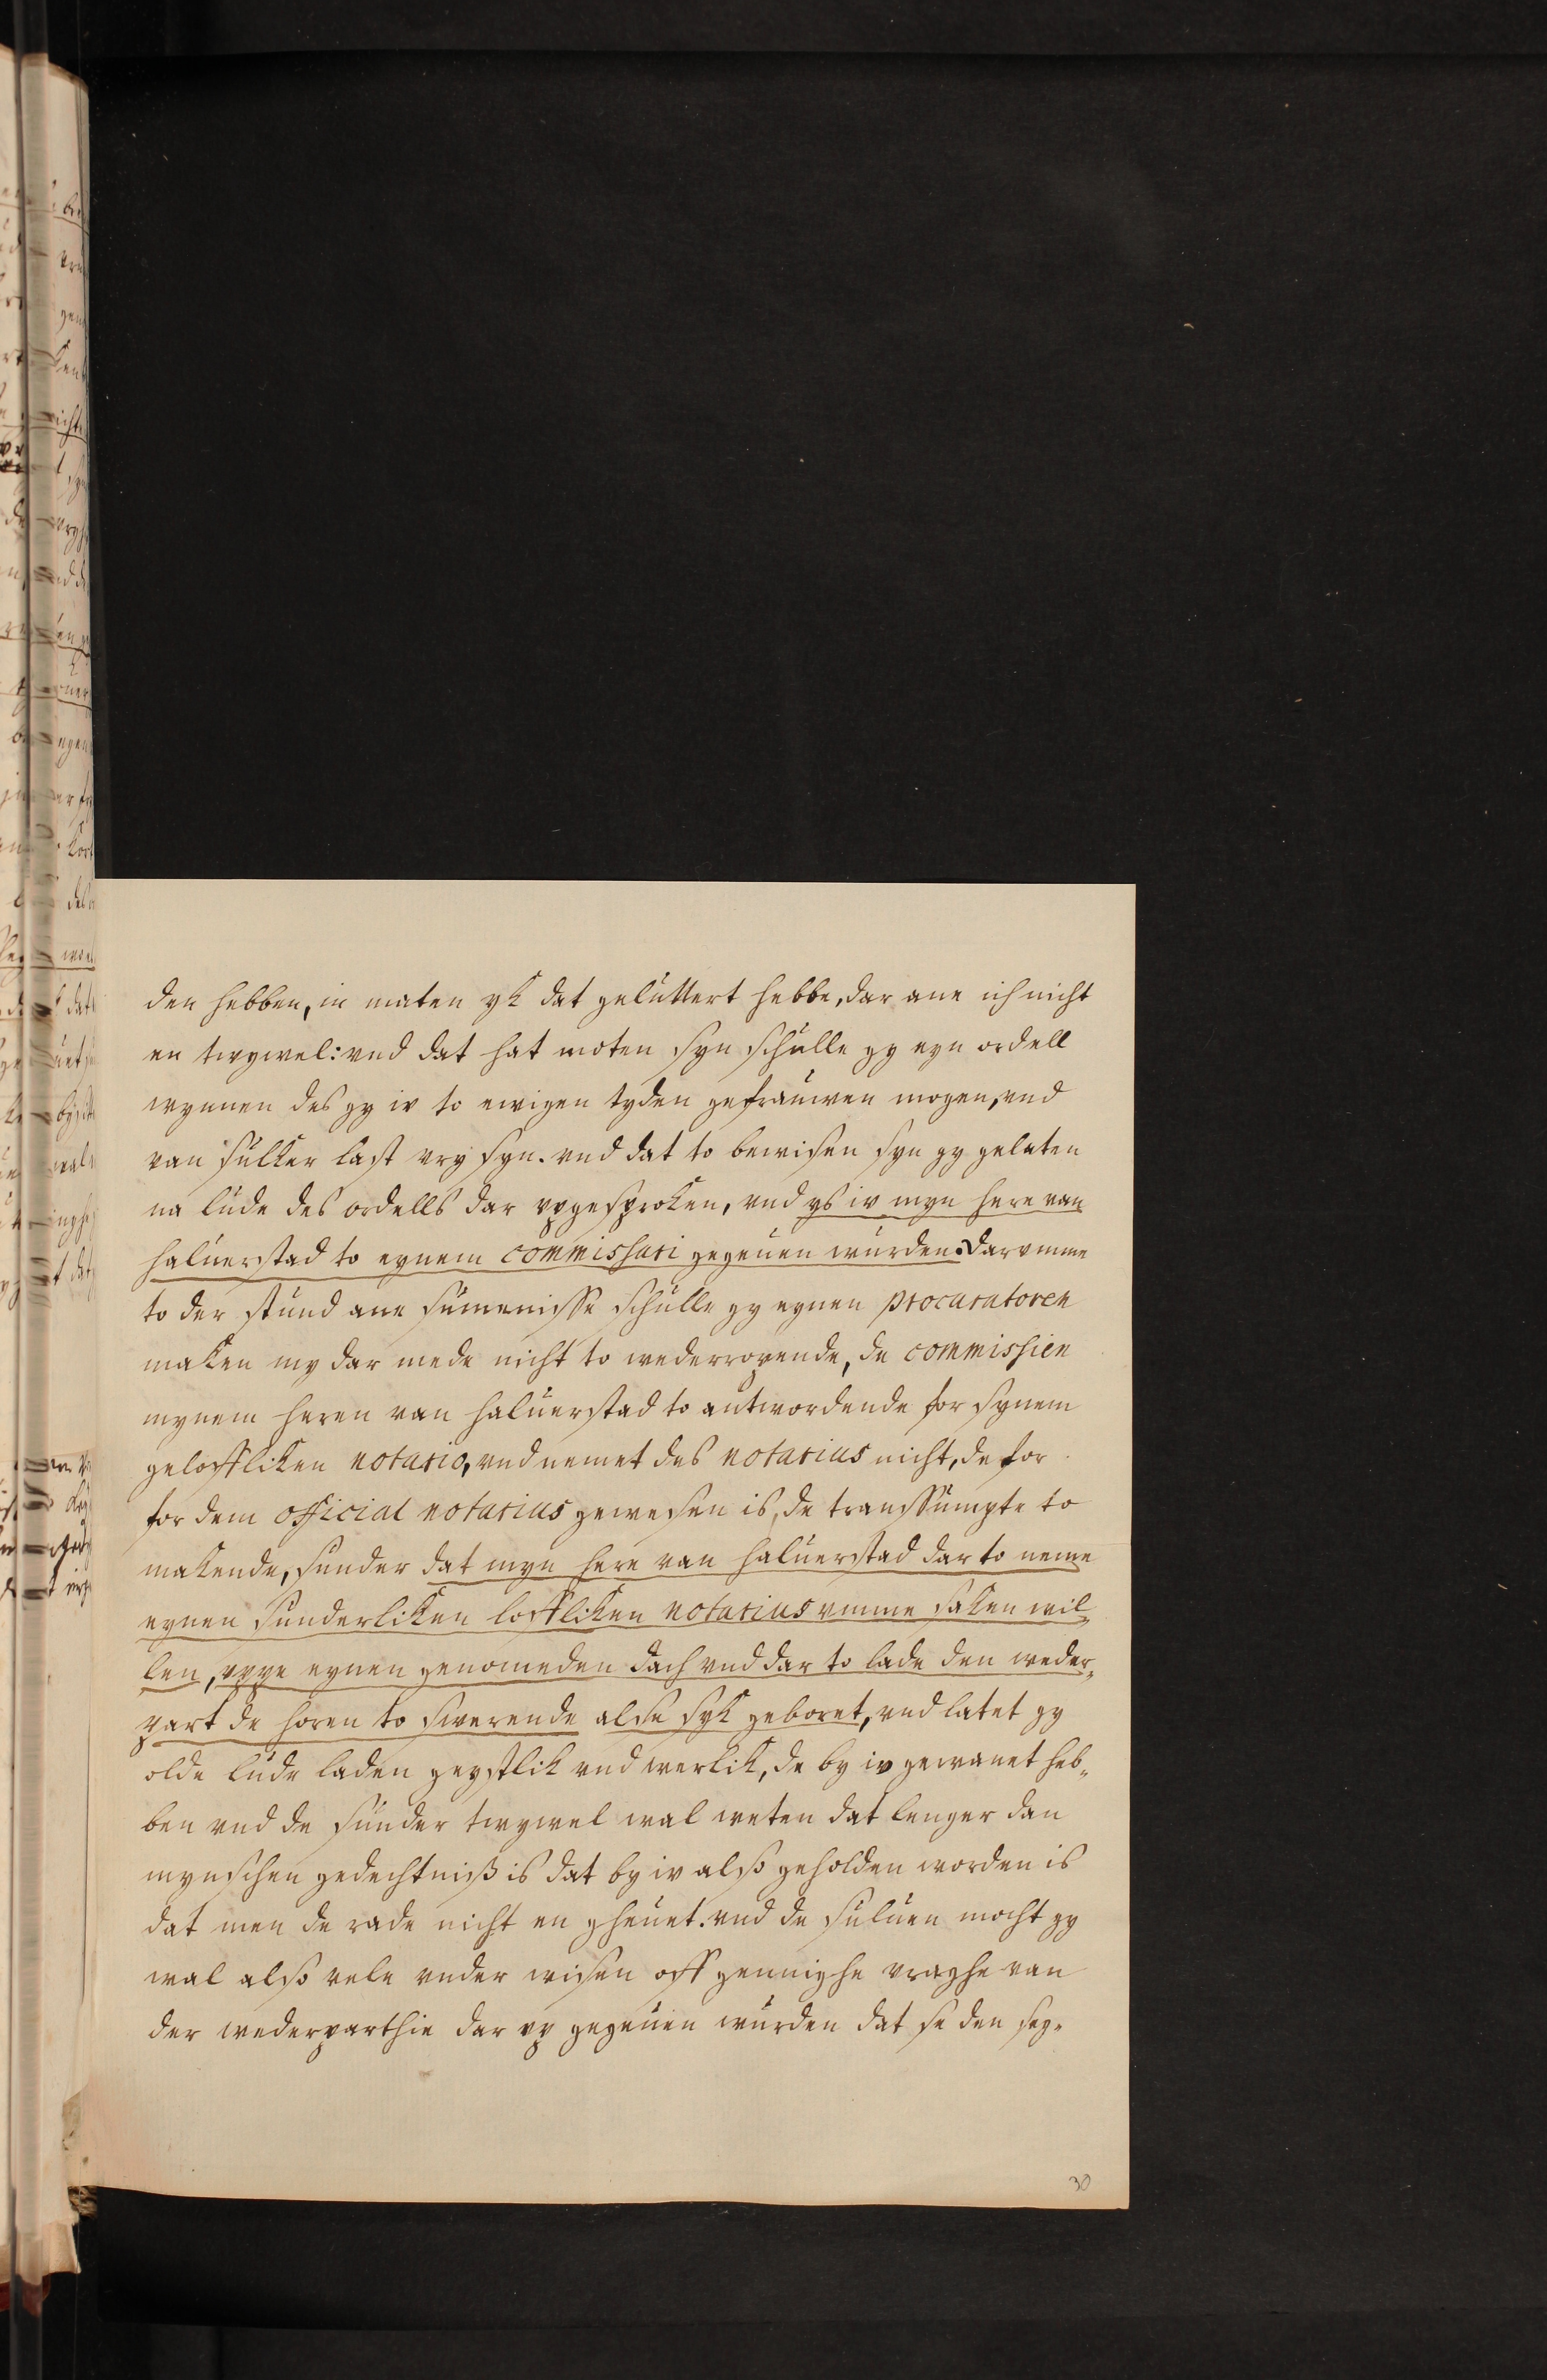 den hebben, in maten yk dat geluttert hebbe, dar ane ich nicht
en twywel: vnd dat hat moten syn schulle gy eyn ordell
wynnen des gy iv to ewigen tyden gefrauwen mogen, vnd
van sulker last vry syn. vnd dat to bewisen syn gy gelaten
na lude des ordells dar vpgesproken, vnd ys iv myn here van
haluerstad to eynem commissari gegeuen wurden. Darvmme
to der stund ane sumenisse schulle gy eynen procuratoren
maken my dar mede nicht to wederropende, de commissien
mynem heren van haluerstad to antwordende for synem
geloffliken notario, vnd nemet des notarius nicht, de for
for dem official notarius gewesen is, de transsumpte to
makende, sunder dat myn here van haluerstad dar to neme
eynen sunderliken loffliken notarius vmme saken wil-
len, vppe eynen genomeden dach vnd dar to lade den weder-
part de horen to swerende alse syk geboret, vnd latet gy
olde lude laden geystlik vnd werlik, de by iv gewanet heb-
ben vnd de sunder twywel wal weten dat lenger dan
mynschen gedechtniß is dat by iv alß geholden worden is
dat men de rade nicht en gheuet. vnd de suluen mocht gy
wal alß vele vnder wisen off gennighe vraghe van
der wederparthie dar vp gegeuen wurden dat se den seg-
30